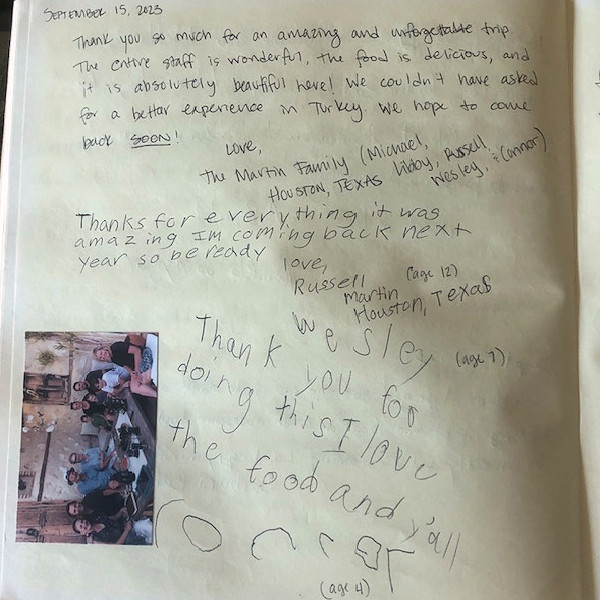 SEPTEMBER 15, 2023
Thank you so much for an amazing and unforgettable trip.
The entire staff is wonderful, the food is delicious, and
it is absolutely beautiful here! We couldn't have asked
for a better experience in Turkey. We hope to come
back SOON!
Love,
The Martin Family (Michael,
Libby, Russell,
Wesley, & Connor)
HOUSTON, TEXAS
Thanks for everything it was
amazing Im coming back next
year so be ready
love,
Russell (age 12)
Martin
Houston, Texas
Wesley (age 7)
Thank you for
doing this I love
the food and y'all
(age 4)